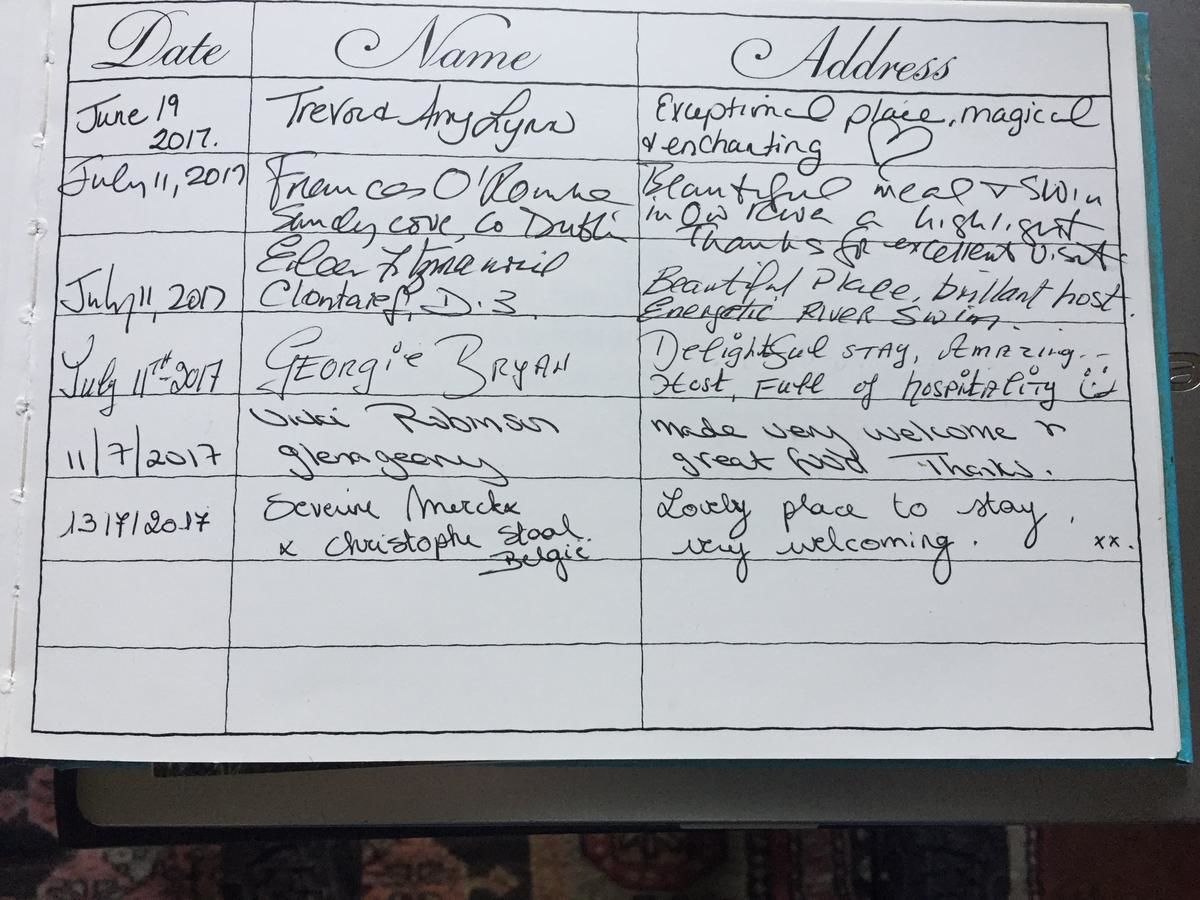 Date Name Address
June 19 Trevor & Amy Lynn Exceptional place, magical
2017. & enchanting
July 11, 2017 Frances O'Rourke Beautiful meal & swim
Sandycove, Co Dublin in Ow River a highlight
Thanks for excellent visit
Eileen Fitzmaurice
July 11, 2017 Clontarf, D.3. Beautiful Place, brillant host.
Energetic RIVER SWIM.
July 11TH-2017 GEORGIE BRYAN Delightful STAY, AMAZING...
Host, Full of hospitALiTy
Vicki Robinson made very welcome &
11/7/2017 glenageary great food Thanks.
13/7/2017 Severine Merckx Lovely place to stay,
& Christophe Staal. very welcoming. xx.
België